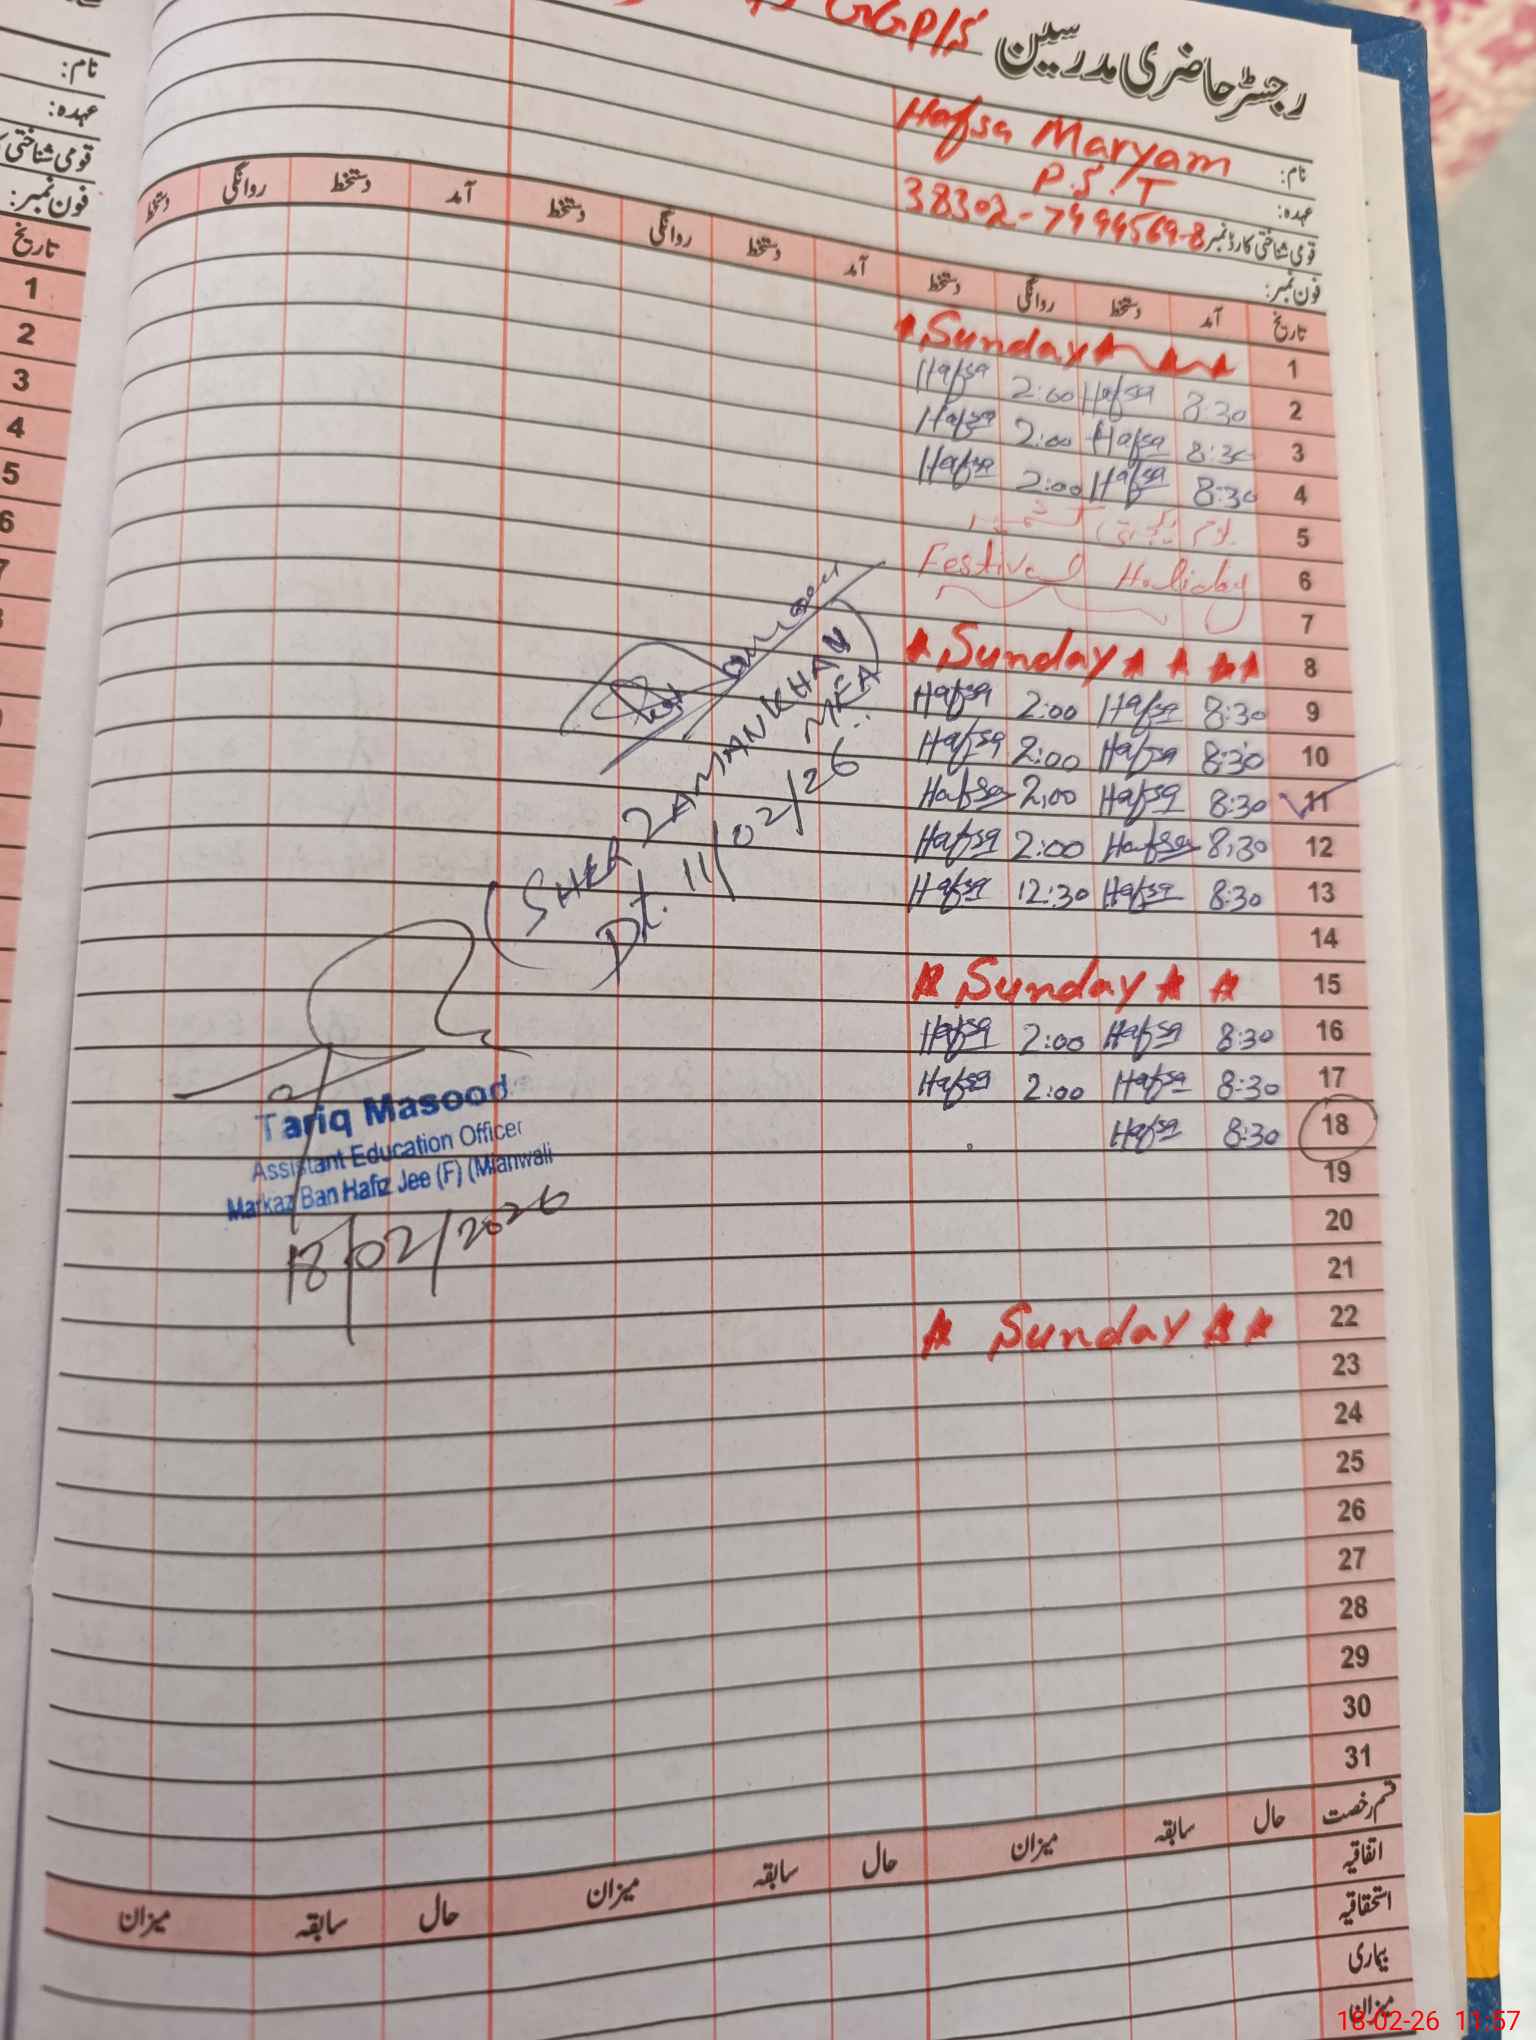 GGP/S رجسٹر حاضری مدرسین
نام: Hafsa Maryam
عہدہ: P.S.T
قومی شناختی کارڈ نمبر 38302-7494569-8
فون نمبر:
تاریخ آمد دستخط روانگی دستخط آمد دستخط روانگی دستخط آمد دستخط روانگی دستخط
1 Sunday
2 8:30 Hafsa 2:00 Hafsa
3 8:30 Hafsa 2:00 Hafsa
4 8:30 Hafsa 2:00 Hafsa
5
6 Festival Holiday
7
8 Sunday
9 8:30 Hafsa 2:00 Hafsa
10 8:30 Hafsa 2:00 Hafsa
11 8:30 Hafsa 2,00 Hafsa
12 8:30 Hafsa 2:00 Hafsa
13 8:30 Hafsa 12:30 Hafsa
14
15 Sunday
16 8:30 Hafsa 2:00 Hafsa
17 8:30 Hafsa 2:00 Hafsa
18 8:30 Hafsa
19
20
21
22 Sunday
23
24
25
26
27
28
29
30
31
(SHER ZAMAN KHAN)
MEA
Dt. 11/02/26
Tariq Masood
Assistant Education Officer
Markaz Ban Hafiz Jee (F) (Mianwali
18/02/2026
قسم رخصت حال سابقہ میزان حال سابقہ میزان حال سابقہ میزان
اتفاقیہ
استحقاقیہ
بیماری
میزان
نام:
عہدہ:
قومی شناختی
فون نمبر:
تاریخ
1
2
3
4
5
6
18-02-26 11:57